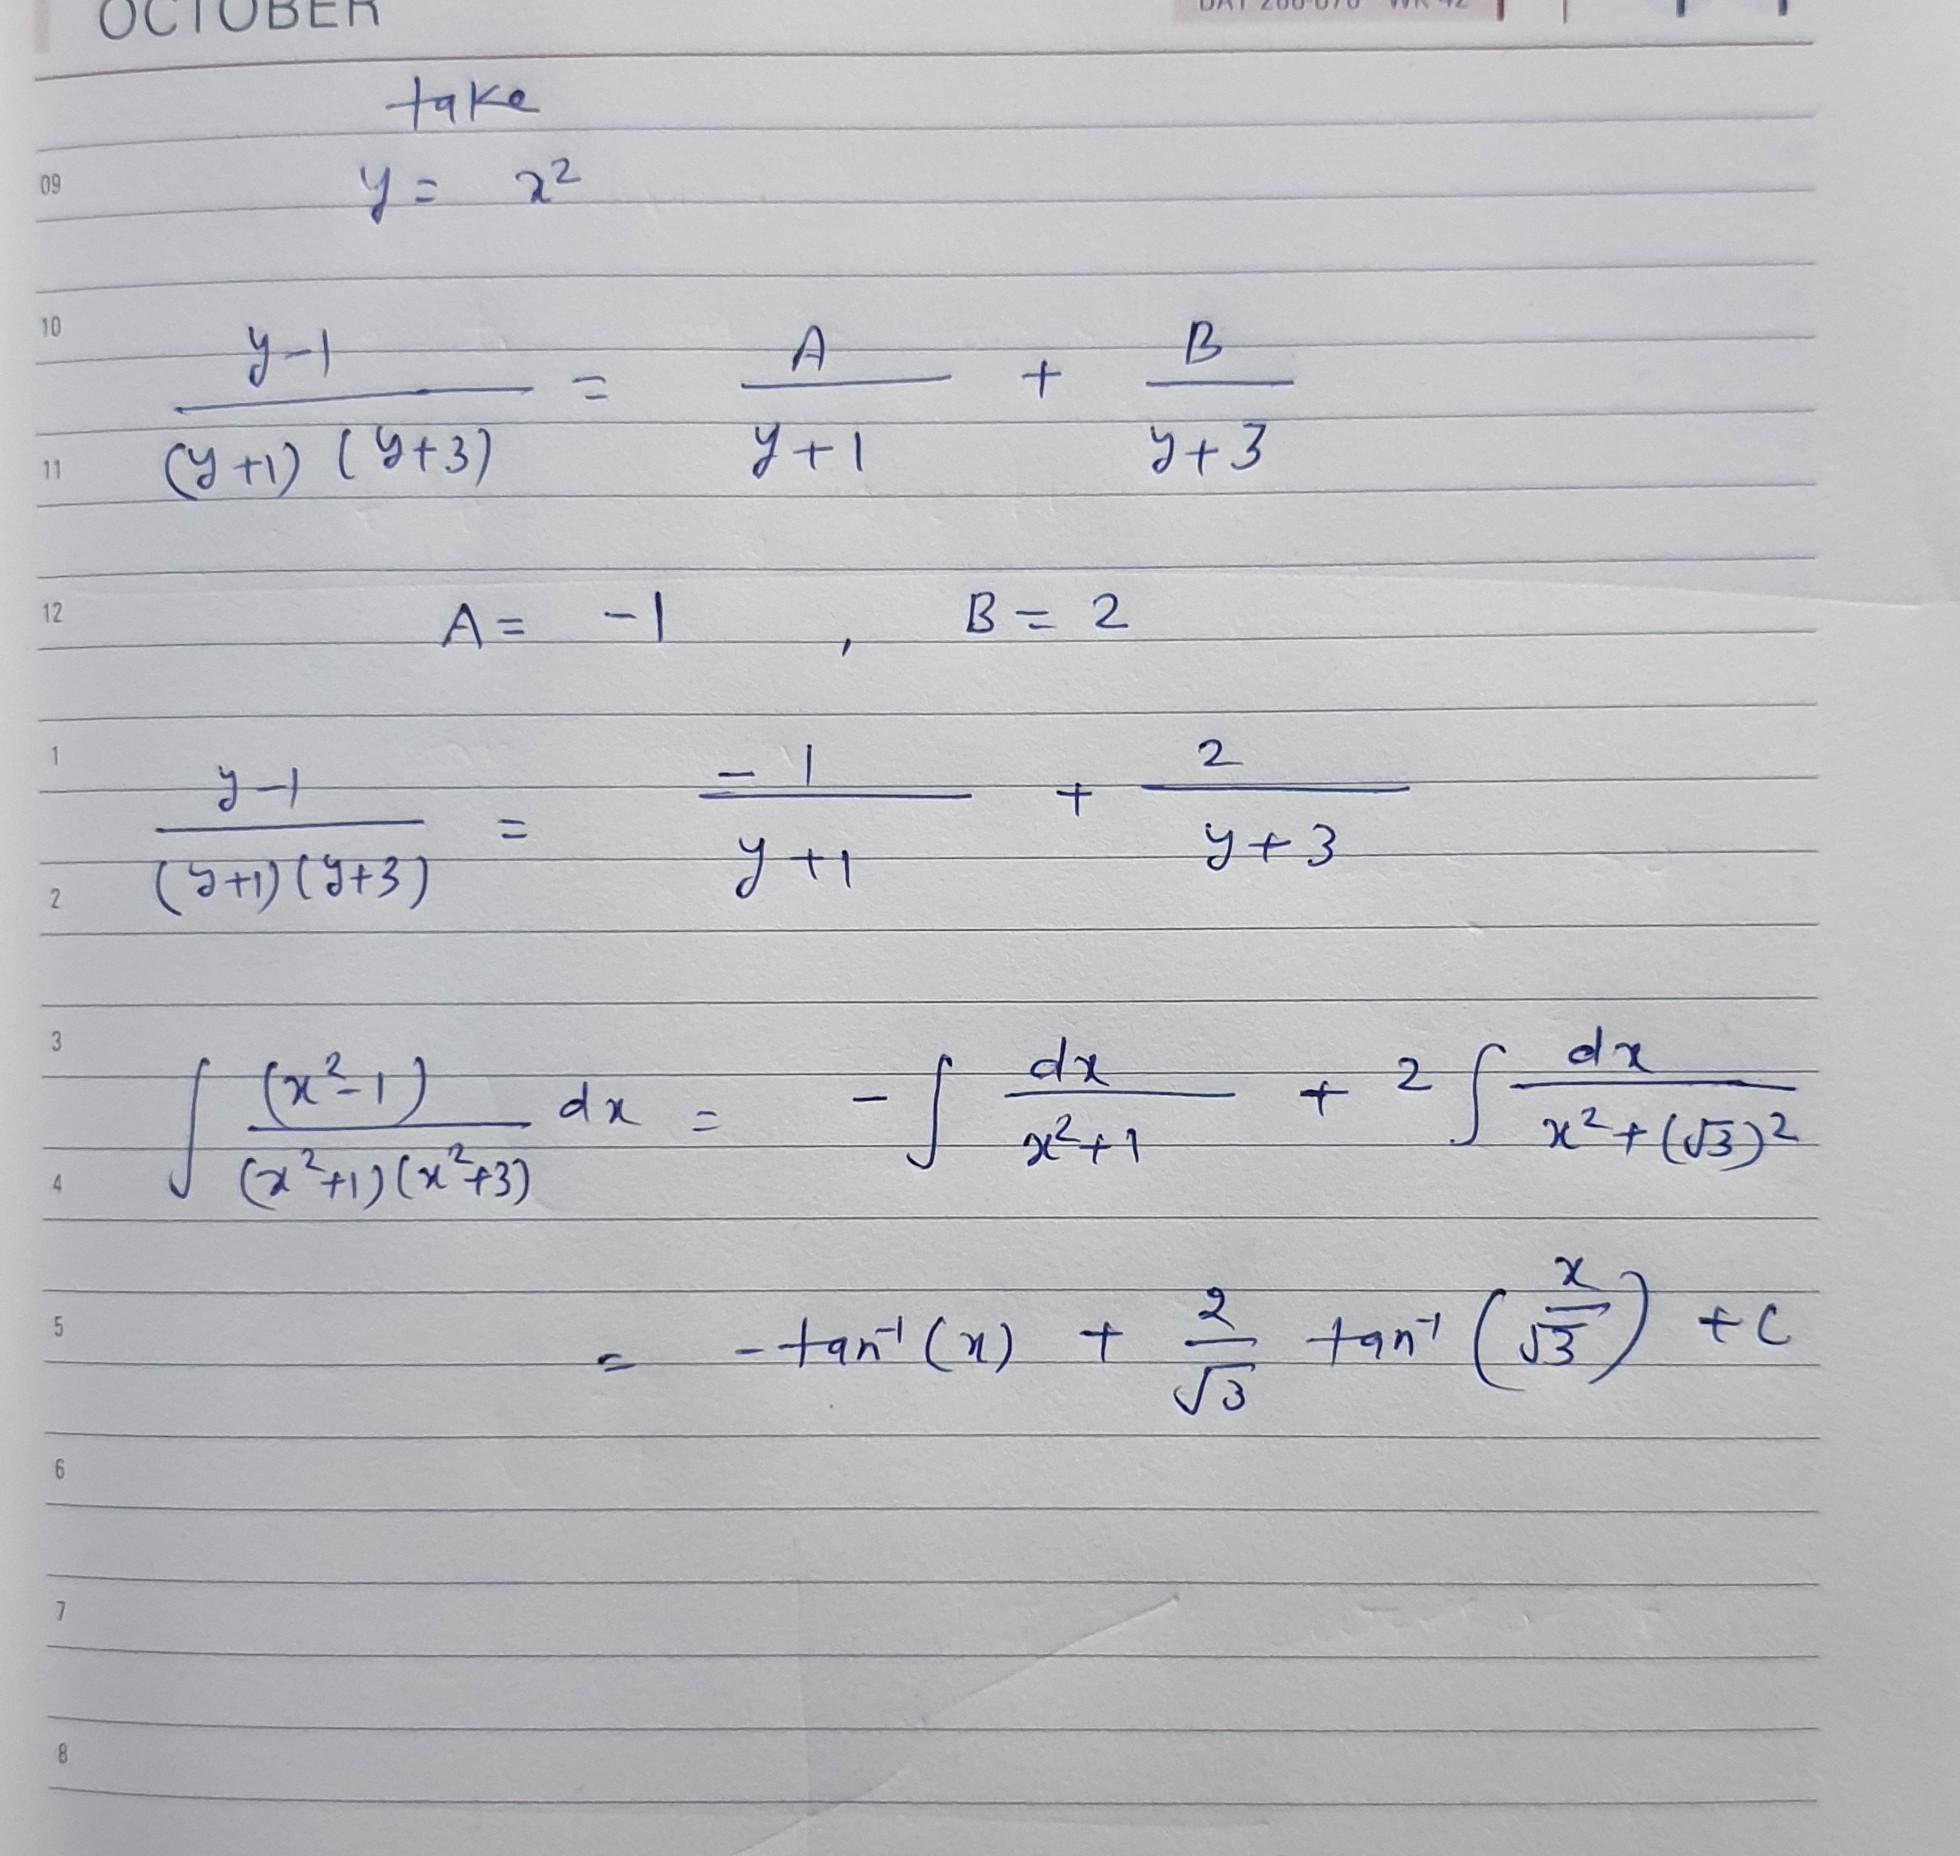 OCTOBER
take
09
y = x²
10
(y-1)/((y+1)(y+3)) = A/(y+1) + B/(y+3)
11
12
A = -1 , B = 2
1
(y-1)/((y+1)(y+3)) = -1/(y+1) + 2/(y+3)
2
3
∫ (x²-1)/((x²+1)(x²+3)) dx = -∫ dx/(x²+1) + 2 ∫ dx/(x²+(√3)²)
4
5
= -tan⁻¹(x) + 2/√3 tan⁻¹(x/√3) + C
6
7
8